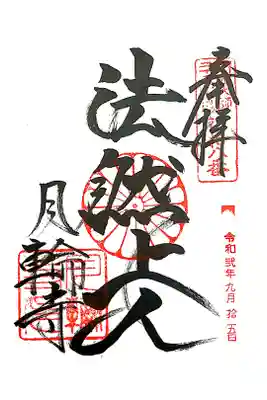 奉拝
令和弐年九月拾五日
法然上人
月輪寺